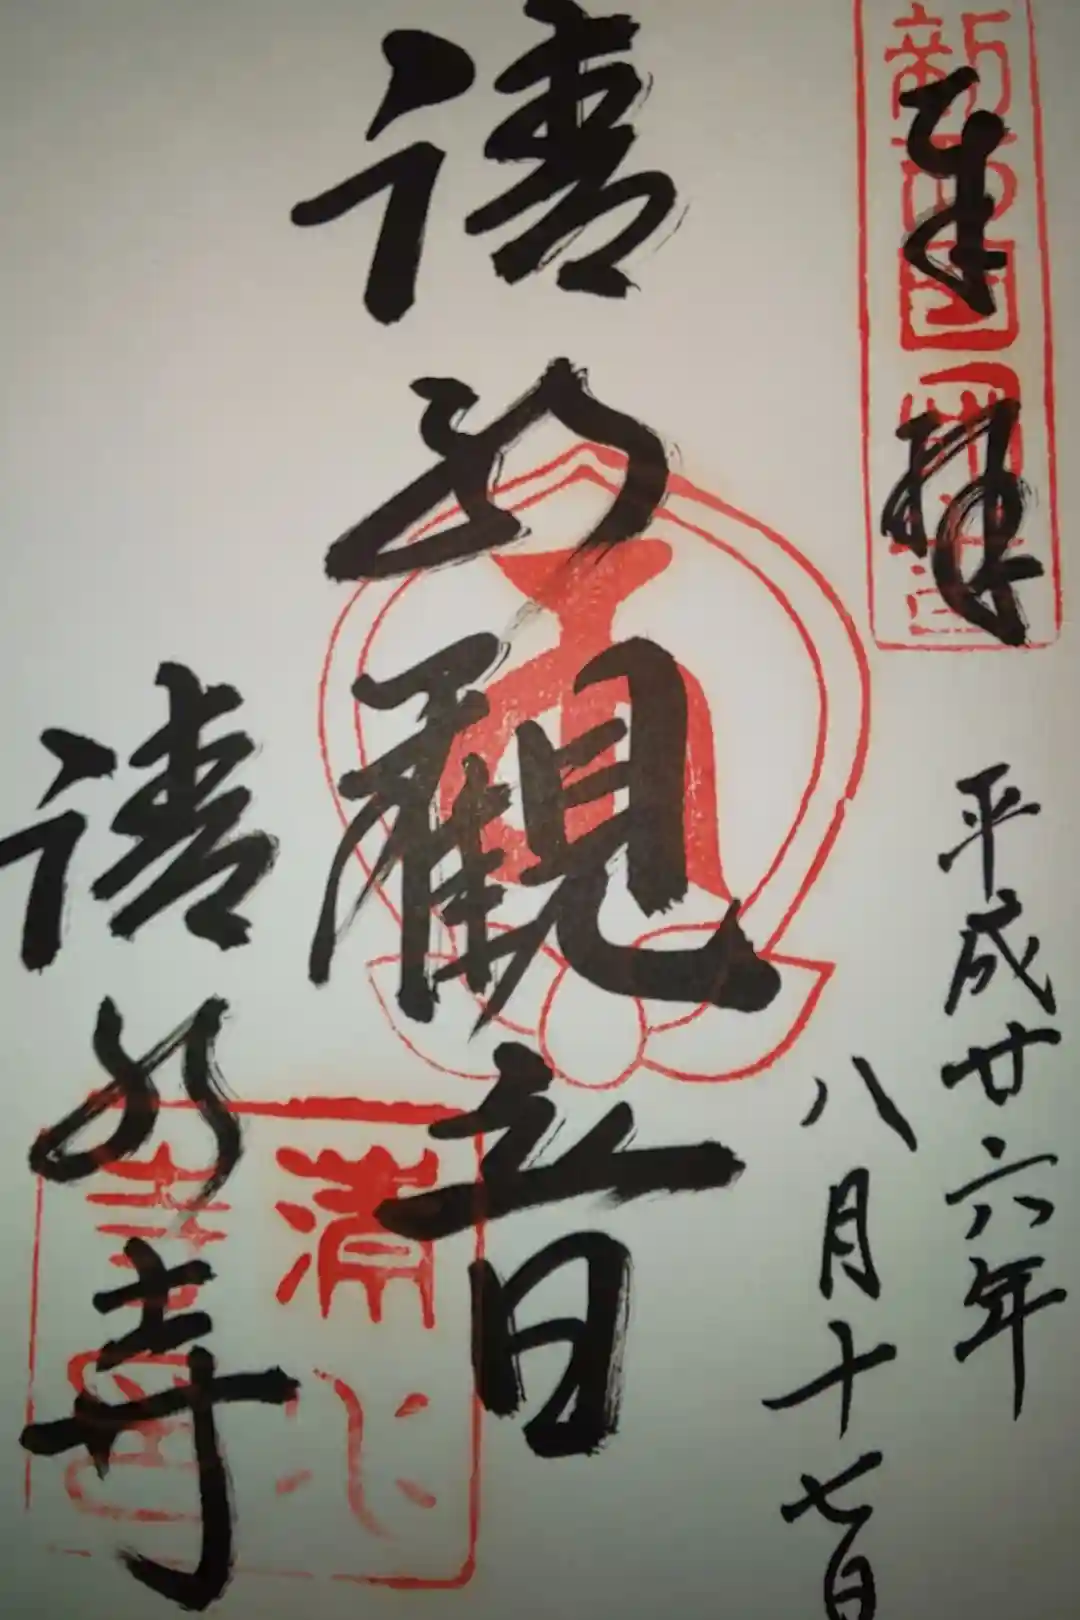 新西国
奉拝
平成廿六年
八月十七日
清水觀音
清水寺
清水